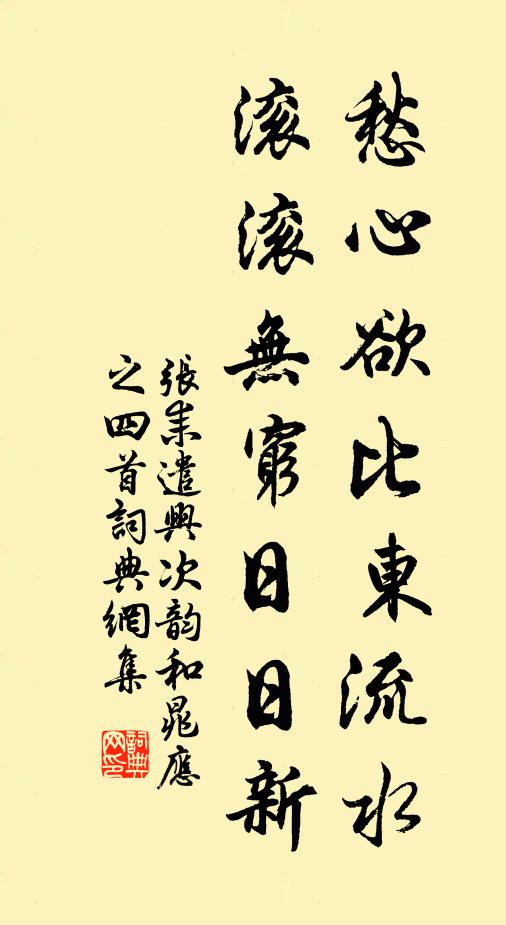 愁心欲比東流水
滚滚無窮日日新
張耒遣興次韵和晁應
之四首詞典網集
詞典網印